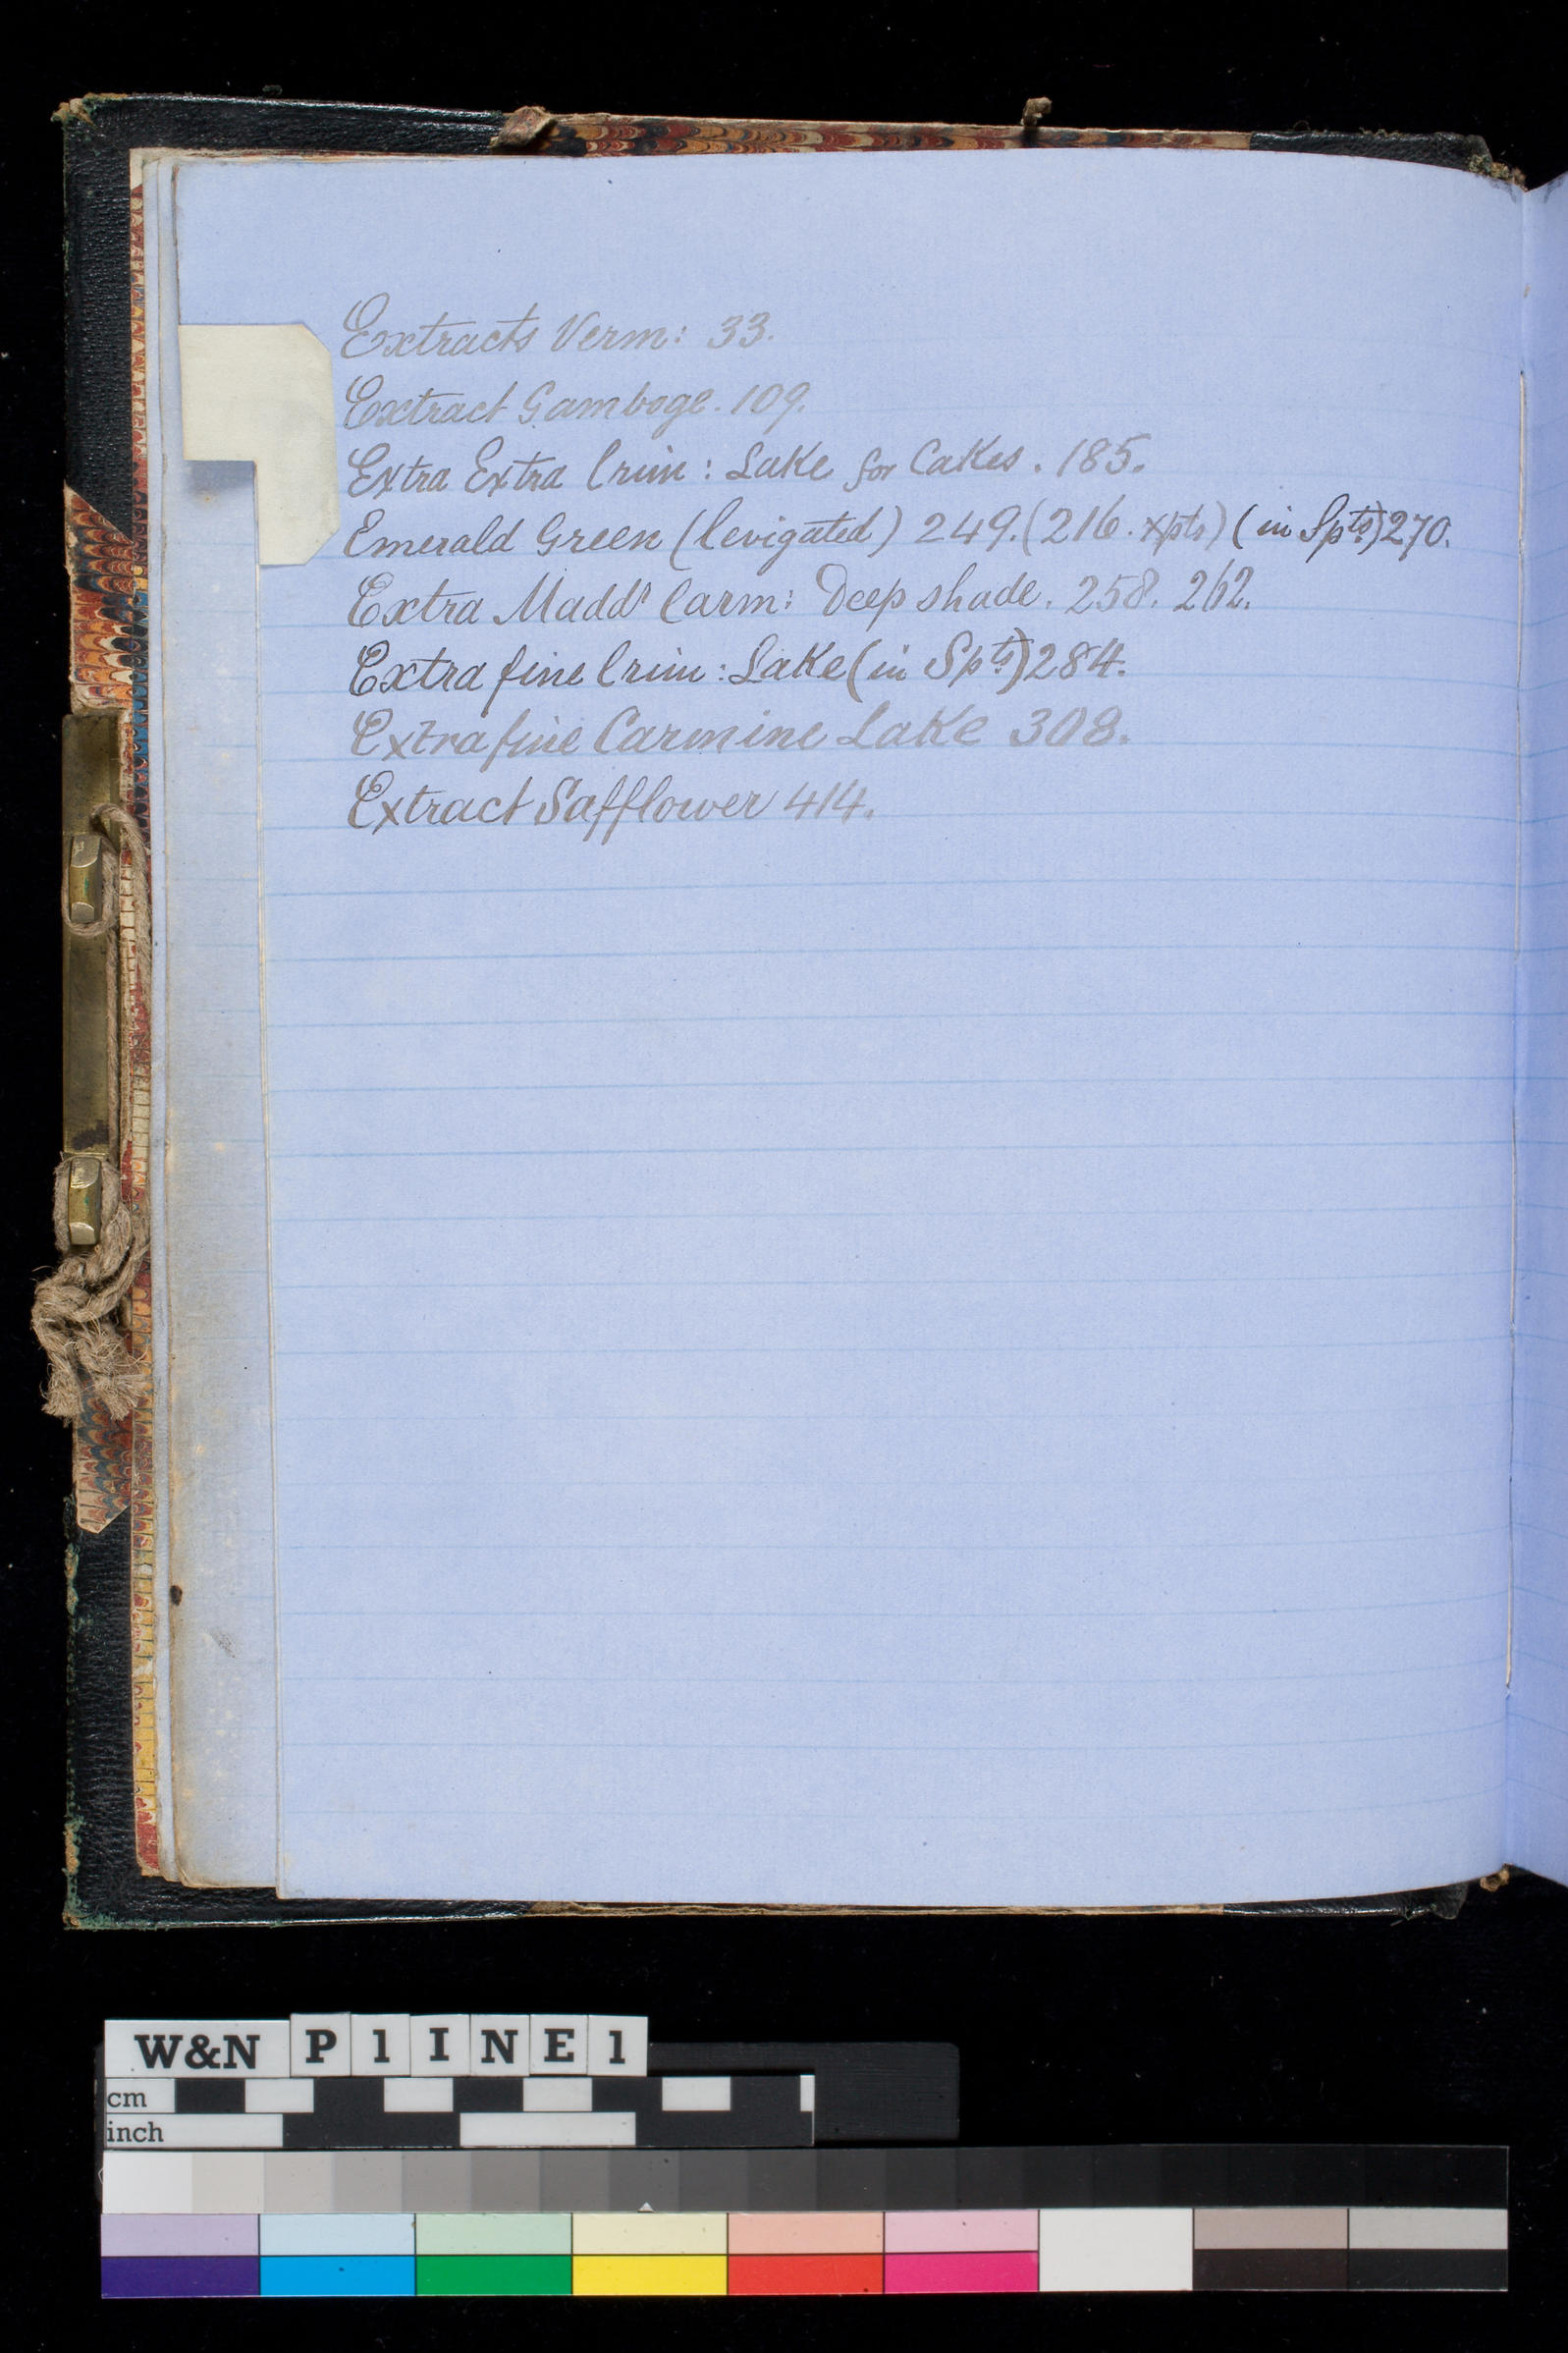 Extracts Verm: 33.
Extract Gamboge. 109.
Extra Extra Crim: Lake for Cakes. 185.
Emerald Green (levigated) 249. (216. xpts) (in Spts) 270.
Extra Maddr Carm: Deep shade. 258. 262.
Extra fine Crim: Lake (in Spts) 284.
Extra fine Carmine Lake 308.
Extract Safflower 414.
W&N P1INE1
cm
inch